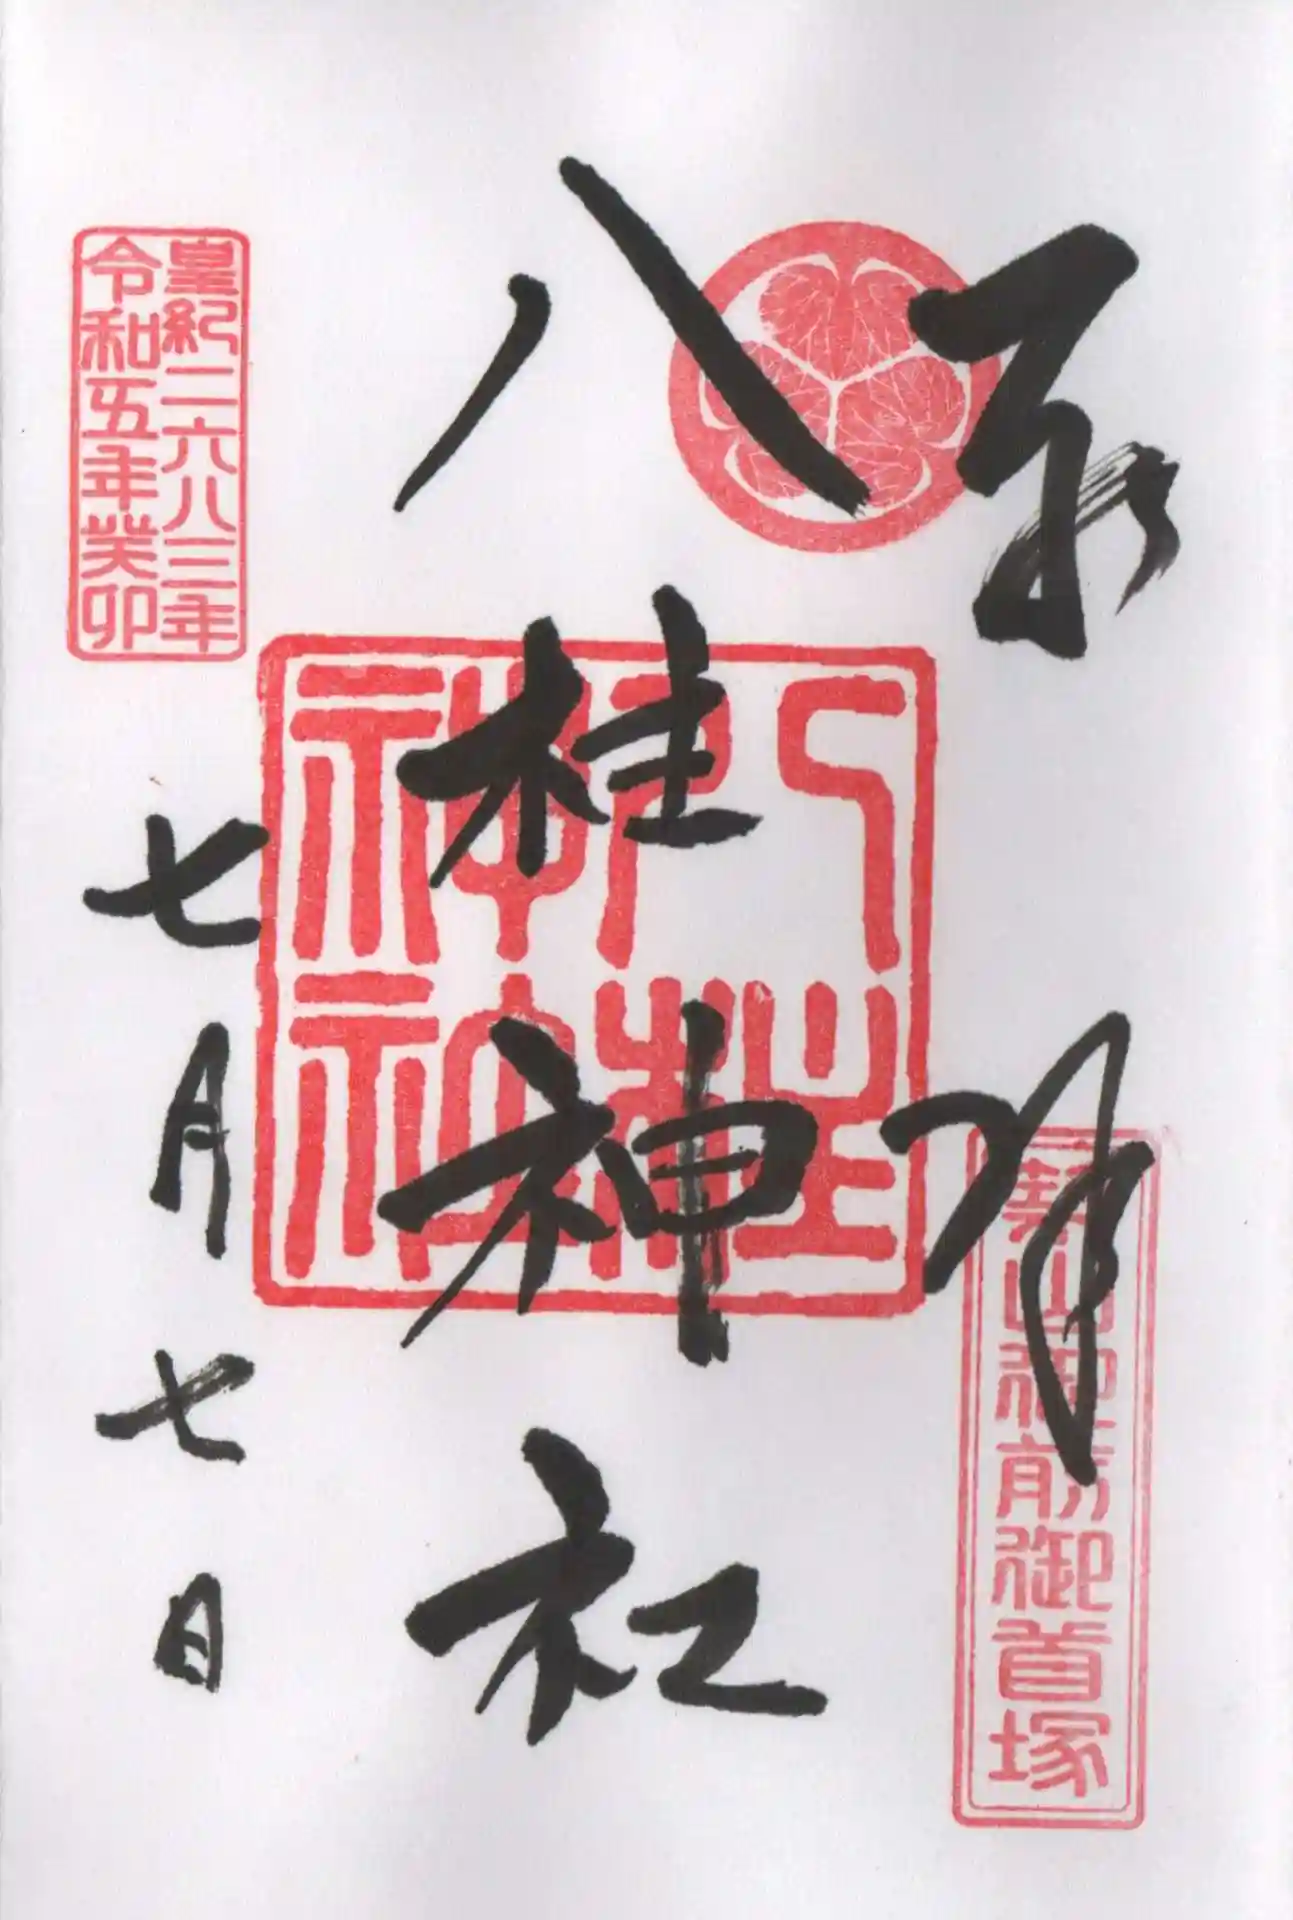 奉拝
築山御前御首塚
八柱神社
八柱
神社
皇紀二六八三年
令和五年癸卯
七月七日